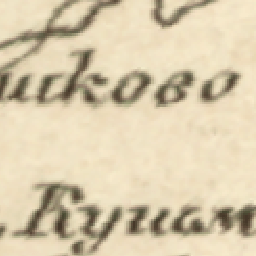 шково
Кушам